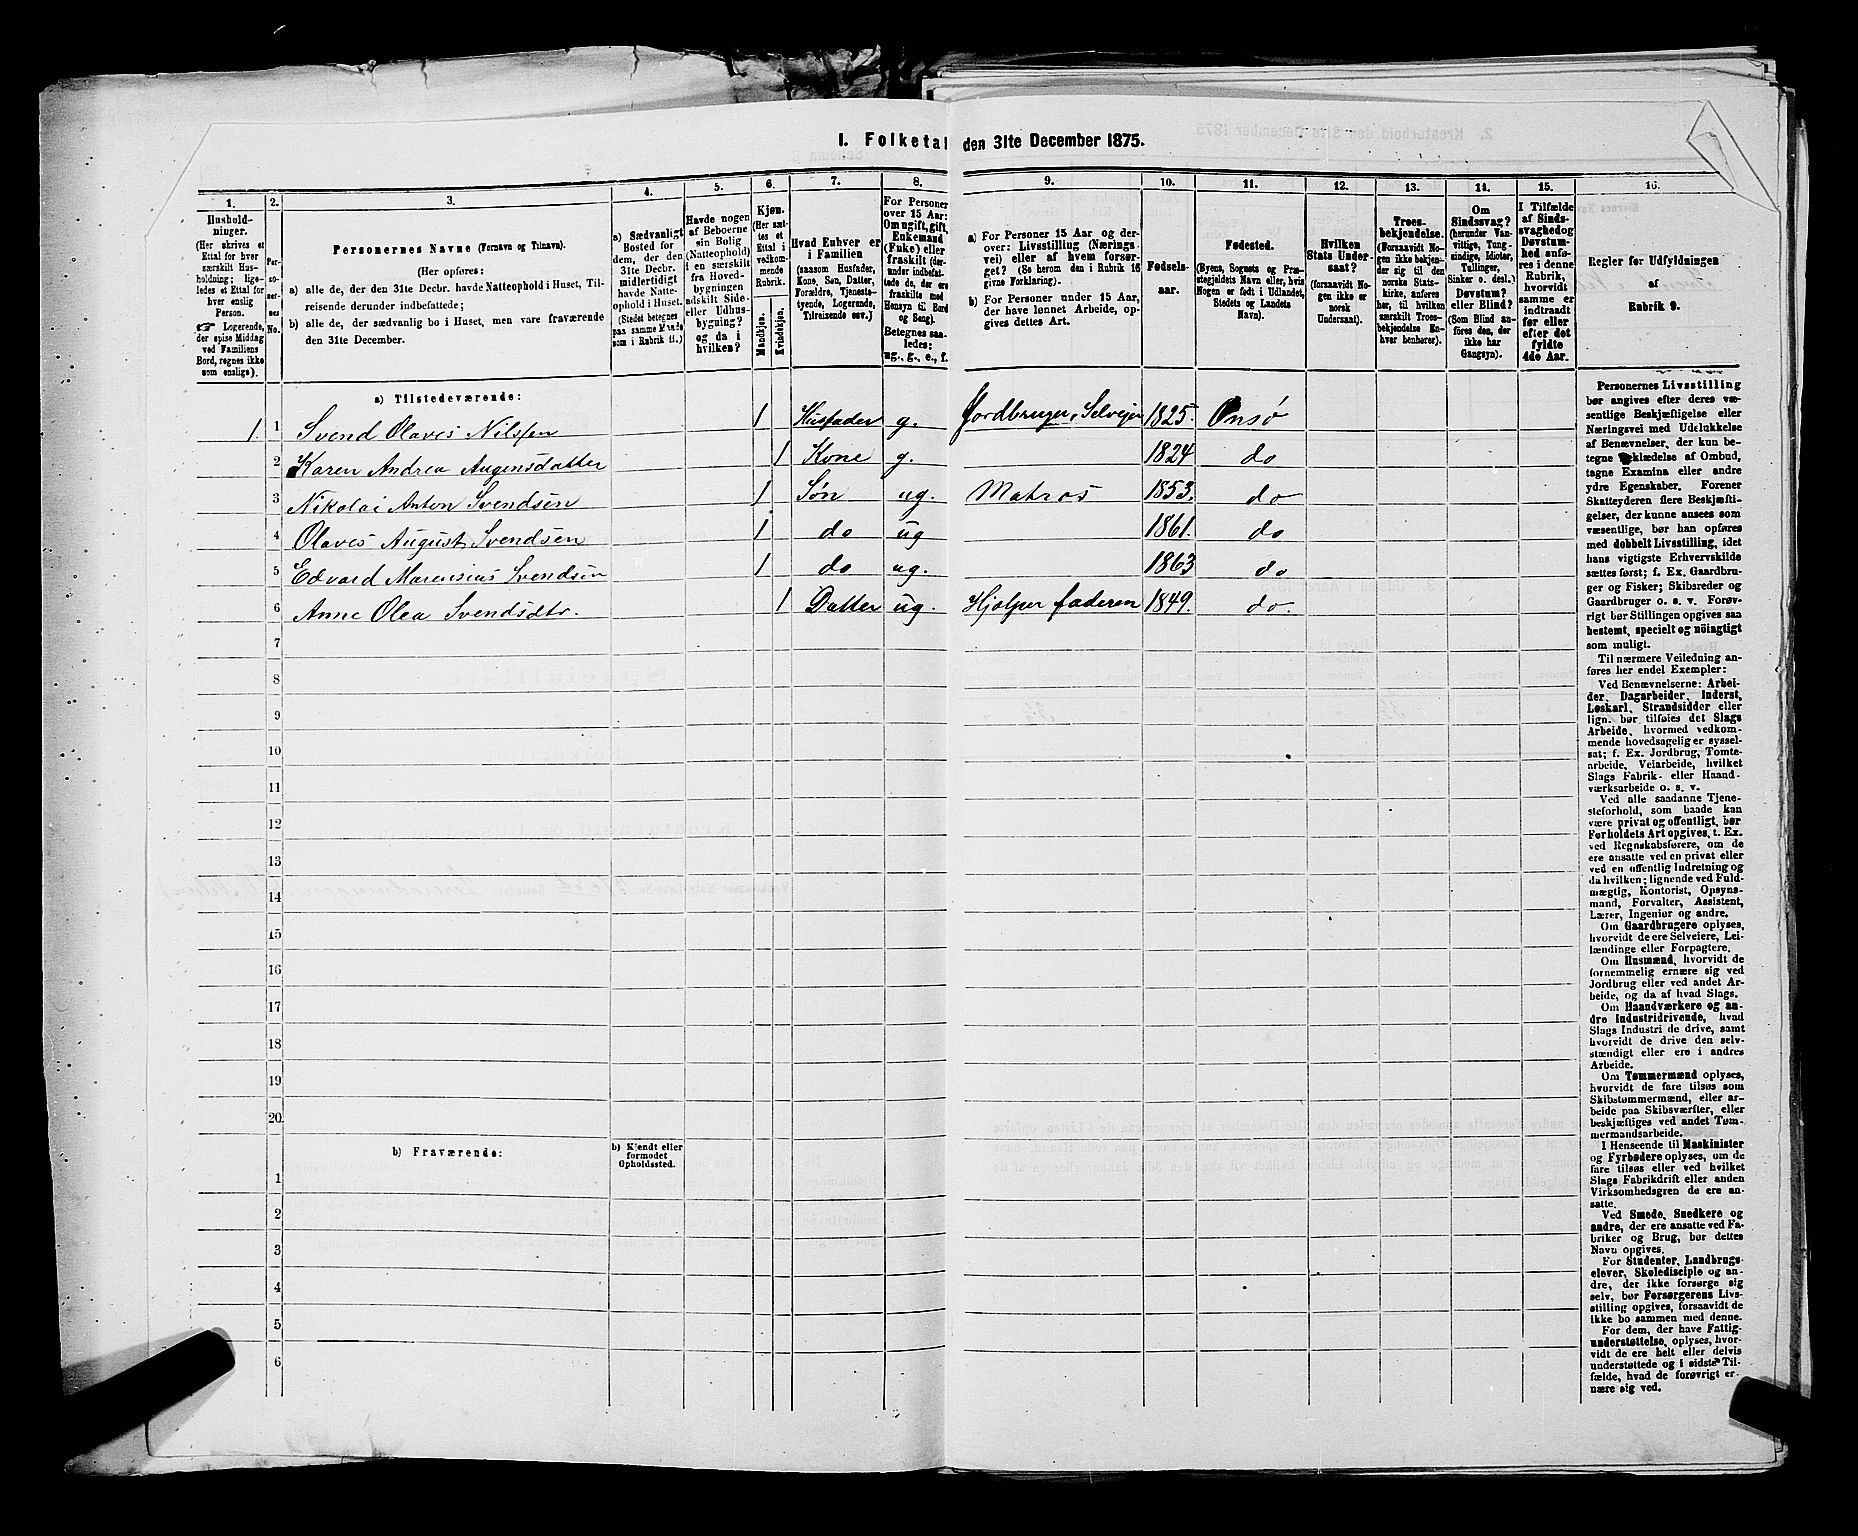 I. Folketal den 31te December 1875.
1. 2. 3. 4. 5. 6. 7. 8. 9. 10. 11. 12. 13. 14. 15. 16.
Husholdninger.
(Her skrives et
Ettal for hver
særskilt Husholdning;
ligeledes et Ettal for
hver enslig
Person.
☞ Logerende,
der spise Middag
ved Familiens
Bord, regnes ikke
som enslige).
Personernes No.
Personernes Navne (Fornavn og Tilnavn).
(Her opføres:
a) alle de, der den 31te Decbr. havde Natteophold i Huset, Tilreisende derunder indbefattede;
b) alle de, der sædvanlig bo i Huset, men vare fraværende
den 31te December.
a) Sædvanligt
Bosted for
dem, der den
31te Decbr.
midlertidigt
havde Natteophold i Huset.
(Stedet betegnes
paa samme Maade
som i Rubrik 11.)
Havde nogen
af Beboerne
sin Bolig
(Natteophold)
i en særskilt
fra Hovedbygningen
adskilt Side-
eller Udhusbygning?
og da i
hvilken?
Kjøn.
(Her sættes et
Ettal i
vedkommende
Rubrik.
Mandkjøn.
Kvindekjøn.
Hvad Enhver er
i Familien
(saasom Husfader,
Kone, Søn, Datter,
Forældre, Tjenestetyende, Logerende,
Tilreisende osv.)
For Personer
over 15 Aar:
Om ugift, gift,
Enkemand
(Enke) eller
fraskilt (derunder indbefattede de, der ere
fraskilte med
Hensyn til Bord
og Seng).
Betegnes saaledes:
ug., g., e., f.
a) For Personer 15 Aar og derover: Livsstilling (Næringsvei) eller af hvem forsørget? (Se herom den i Rubrik 16
givne Forklaring).
b) For Personer under 15 Aar,
der have lønnet Arbeide, opgives dettes Art.
Fødselsaar.
Fødested.
(Byens, Sognets og Præstegjeldets Navn eller, hvis
Nogen er født i Udlandet,
Stedets og Landets
Navn).
Hvilken
Stats Undersaat?
(forsaavidt Nogen ikke er
norsk
Undersaat).
Troesbekjendelse.
(Forsaavidt Nogen ikke bekjender sig til den
norske Statskirke, anføres
her, til hvilken
særskilt Troesbekjendelse Enhver henhører).
Om
Sindssvag?
(herunder Vanvittige, Tungsindige, Idioter,
Tullinger,
Sinker o. desl.)
Døvstum?
eller Blind?
(Som Blind anføres den, der
ikke har
Gangsyn).
I Tilfælde
af Sindssvaghed og
Døvstumhed anføres i denne
Rubrik,
hvorvidt
samme er
indtraadt
før eller
efter det
fyldte
4de Aar.
Regler for Udfyldningen
af
Rubrik 9.
a) Tilstedeværende:
1. 1 Svend Olaves Nilssen 1 Husfader g. Jordbruger, Selveier 1825. Onsø
2 Karen Andrea Augensdatter 1 Kone g. 1824 do
3 Nikolai Anton Svendsen 1 Søn ug. Matros 1853. do
4 Olaves August Svendsen 1 do ug 1861. do
5 Edvard Marensius Svendsen 1 do ug. 1863 do
6 Anne Olea Svendsdtr. 1 Datter ug. Hjælper faderen 1849. do.
7
8
9
10
11
12
13
14
15
16
17
18
19
20
b) Fraværende:
b) Kjendt eller
formodet
Opholdssted.
1
2
3
4
5
6
Personernes Livsstilling
bør angives efter deres væsentlige Beskjæftigelse eller
Næringsvei med Udelukkelse
af Benævnelser, der kun betegne Beklædelse af Ombud,
tagne Examina eller andre
ydre Egenskaber. Forener
Skatteyderen flere Beskjæftigelser, der kunne ansees som
væsentlige, bør han opføres
med dobbelt Livsstilling, idet
hans vigtigste Erhvervskilde
sættes først; f. Ex. Gaardbruger og Fisker; Skibsreder og
Gaardbruger o. s. v. Forøvrigt bør Stillingen opgives saa
bestemt, specielt og nöiagtigt
som muligt.
Til nærmere Veiledning anføres her endel Exempler:
Ved Benævnelserne: Arbeider, Dagarbeider, Inderst,
Løskarl, Strandsidder eller
lign. bør tilføies det Slags
Arbeide, hvormed vedkommende hovedsagelig er sysselsat; f. Ex. Jordbrug, Tomtearbeide, Veiarbeide, hvilket
Slags Fabrik- eller Haandværksarbeide o. s. v.
Ved alle saadanne Tjenesteforhold, som baade kan
være privat og offentligt, bør
Forholdets Art opgives, t. Ex.
ved Regnskabsførere, om de
ere ansatte ved en privat eller
ved en offentlig Indretning og
da hvilken; lignende ved Fuldmægtig, Kontorist, Opsynsmand, Forvalter, Assistent,
Lærer, Ingeniør og andre.
Om Gaardbrugere oplyses,
hvorvidt de ere Selveiere, Leilændinge eller Forpagtere.
Om Husmænd, hvorvidt de
fornemmelig ernære sig ved
Jordbrug eller ved andet Arbeide, og da af hvad Slags.
Om Haandværkere og andre Industridrivende, hvad
Slags Industri de drive, samt
hvorvidt de drive den selvstændigt eller ere i andres
Arbeide.
Om Tømmermænd oplyses,
hvorvidt de fare tilsøs som
Skibstømmermænd, eller arbeide paa Skibsværfter, eller
beskjæftiges ved andet Tømmermandsarbeide.
I Henseende til Maskinister
og Fyrbødere oplyses, om de
fare tilsøs eller ved hvilket
Slags Fabrikdrift eller anden
Virksomhedsgren de ere ansatte.
Ved Smede, Snedkere og
andre, der ere ansatte ved Fabriker og Brug, bør dettes
Navn opgives.
For Studenter, Landbrugselever, Skoledisciple og andre, der ikke forsørge sig
selv, bør Forsørgerens Livsstilling opgives, forsaavidt de
ikke bo sammen med denne.
For dem, der have Fattigunderstøttelse, oplyses, hvorvidt de ere helt eller delvis
understøttede og i sidste Tilfælde, hvad de forøvrigt ernære sig ved.